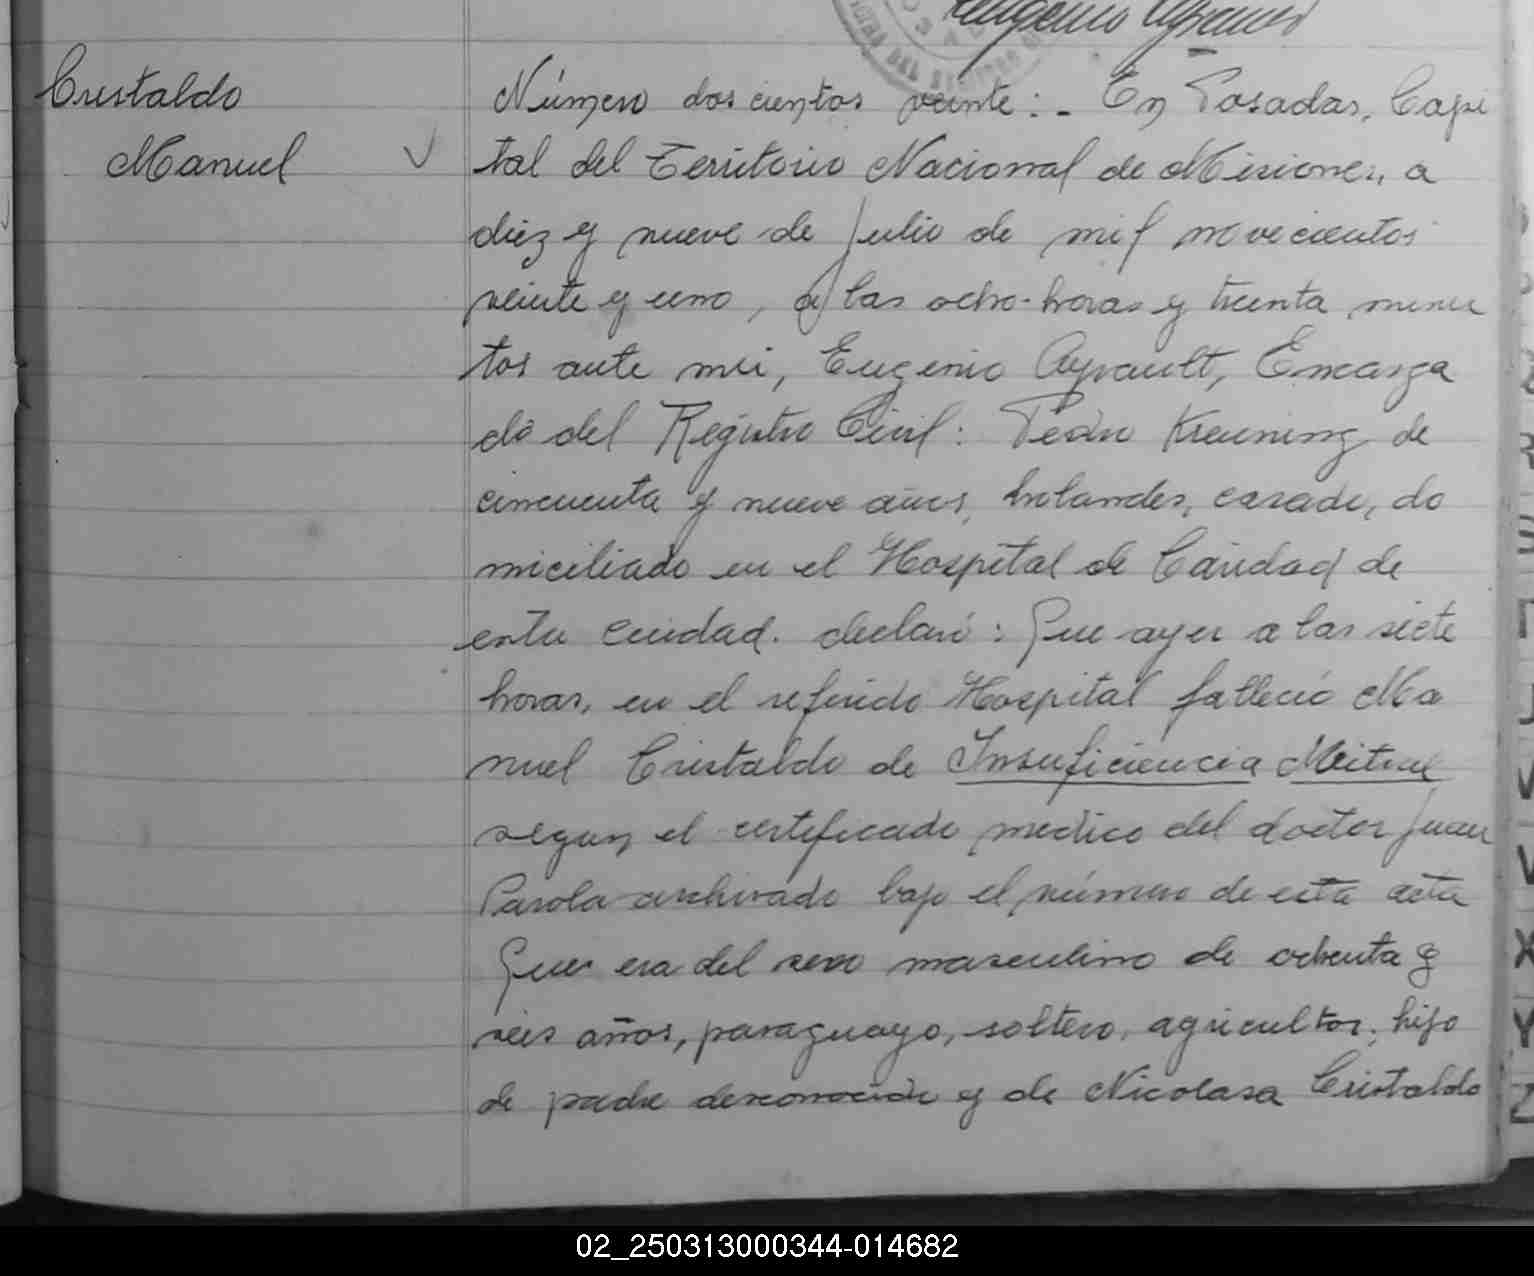 Eugenio Ayrault
Cristaldo
Manuel
Número dos cientos veinte:- En Posadas, Capi
tal del Territorio Nacional de Misiones, a
diez y nueve de Julio de mil novecientos
veinte y uno, a las ocho horas y treinta minu
tos ante mi, Eugenio Ayrault, Encarga
do del Registro Civil: Pedro Kreuning de
cincuenta y nueve años, holandes, casado, do
miciliado en el Hospital de Caridad de
esta ciudad. declaró: Que ayer a las siete
horas, en el referido Hospital falleció Ma
nuel Cristaldo de Insuficiencia Mitral
segun el certificado medico del doctor Juan
Parola archivado bajo el número de esta acta
Que era del sexo masculino de ochenta y
seis años, paraguayo, soltero, agricultor, hijo
de padre desconocido y de Nicolasa Cristaldo
02_250313000344-014682